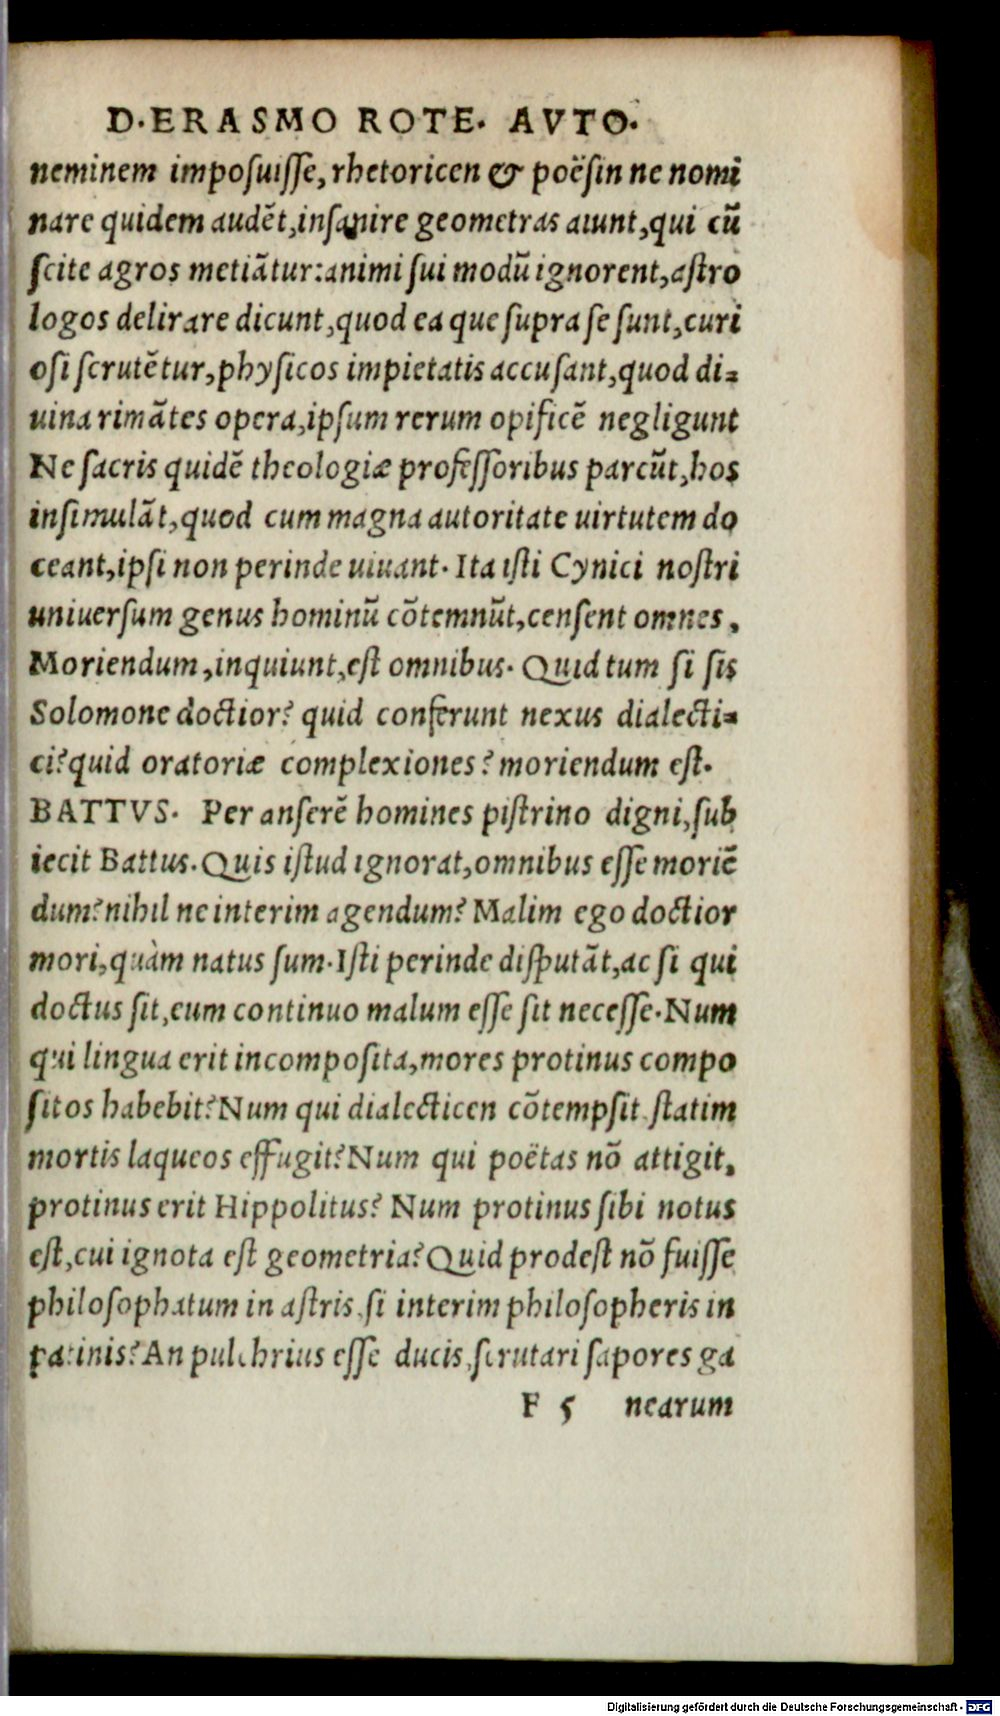 D. ERASMO ROTE. AVTO.
neminem imposuisse, rhetoricen & poësin ne nomi
nare quidem audēt, insanire geometras aiunt, qui cū
scite agros metiātur: animi sui modū ignorent, astro
logos delirare dicunt, quod ea que supra se sunt, curi
osi scrutētur, physicos impietatis accusant, quod di=
uina rimātes opera, ipsum rerum opificē negligunt
Ne sacris quidē theologiæ professoribus parcūt, hos
insimulāt, quod cum magna autoritate uirtutem do
ceant, ipsi non perinde uiuant. Ita isti Cynici nostri
uniuersum genus hominū cōtemnūt, censent omnes,
Moriendum, inquiunt, est omnibus. Quid tum si sis
Solomone doctior? quid conferunt nexus dialecti=
ci? quid oratoriæ complexiones? moriendum est.
BATTVS. Per anserē homines pistrino digni, sub
iecit Battus. Quis istud ignorat, omnibus esse moriē
dum? nihil ne interim agendum? Malim ego doctior
mori, quàm natus sum. Isti perinde disputāt, ac si qui
doctus sit, eum continuo malum esse sit necesse. Num
qui lingua erit incomposita, mores protinus compo
sitos habebit? Num qui dialecticen cōtempsit statim
mortis laqueos effugit? Num qui poëtas nō attigit,
protinus erit Hippolitus? Num protinus sibi notus
est, cui ignota est geometria? Quid prodest nō fuisse
philosophatum in astris, si interim philosopheris in
patinis? An pulchrius esse ducis, scrutari sapores ga
F 5 nearum
Digitalisierung gefördert durch die Deutsche Forschungsgemeinschaft - DFG